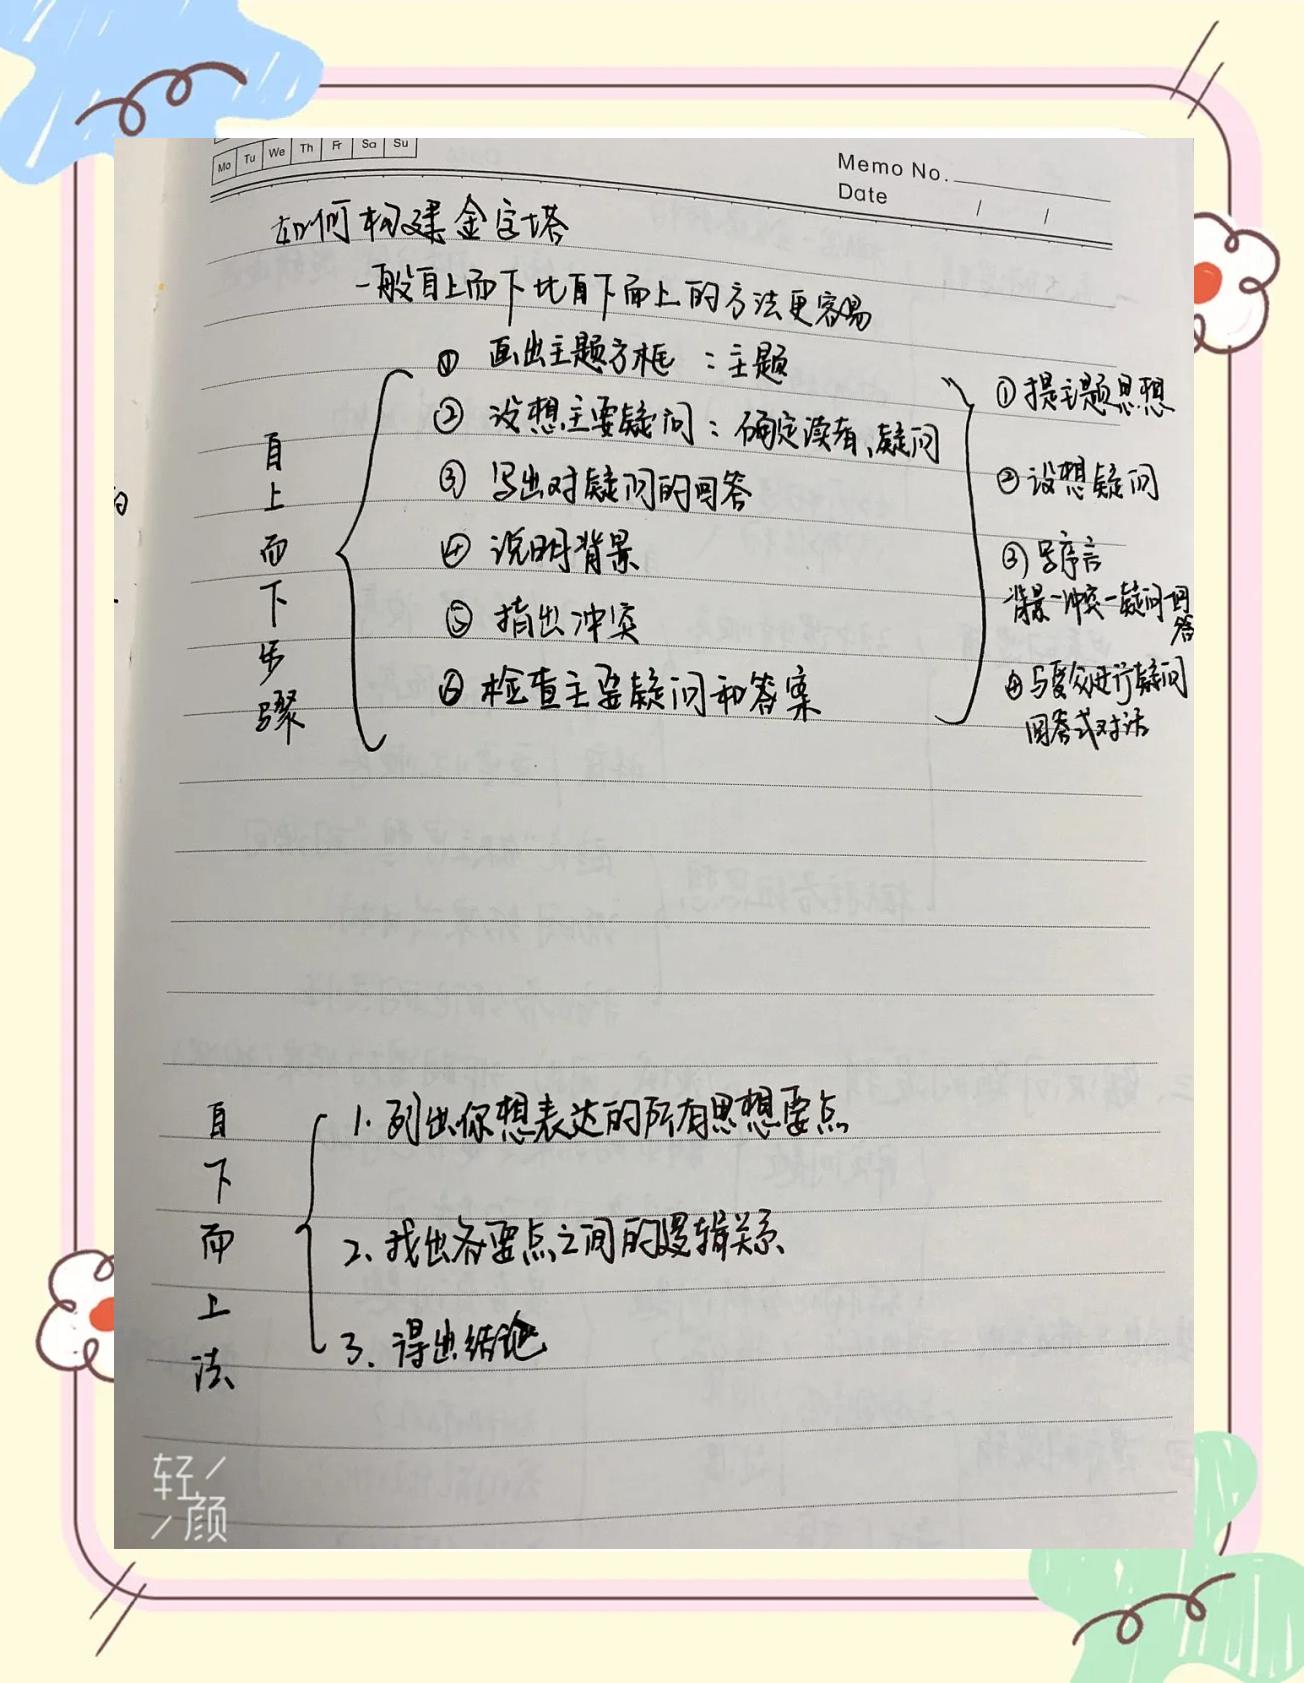 Mo Tu We Th Fr Sa Su
Memo No.
Date / /
如何构建金字塔
一般自上而下比自下而上的方法更容易
自上而下步骤
① 画出主题方框：主题
② 设想主要疑问：确定读者、疑问
③ 写出对疑问的回答
④ 说明背景
⑤ 指出冲突
⑥ 检查主要疑问和答案
① 提主题思想
② 设想疑问
③ 写序言
背景一冲突一疑问一回答
④ 与受众进行疑问
回答式对话
自下而上法
1. 列出你想表达的所有思想要点
2. 找出各要点之间的逻辑关系
3. 得出结论
轻颜